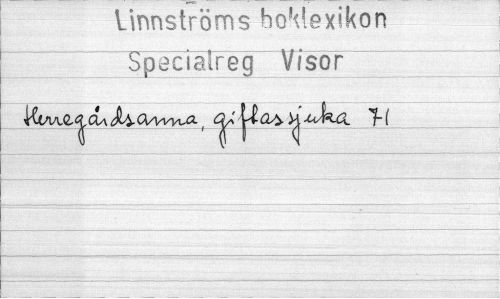 Linnströms boklexikon
Specialreg Visor
Herregårdsanna, giftassjuka 71